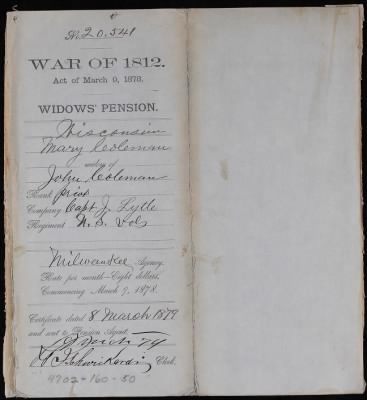 No 20,541
WAR OF 1812.
Act of March 9, 1878.
WIDOWS' PENSION.
Wisconsin
Mary Coleman
widow of
John Coleman
Rank priv
Company Capt J. Lytle
Regiment U. S. Vols
Milwaukee Agency
Rate per month—Eight dollars,
Commencing March 9, 1878.
Certificate dated 8 March 1879
and sent to Pension Agent,
Clerk.
9702-160-50